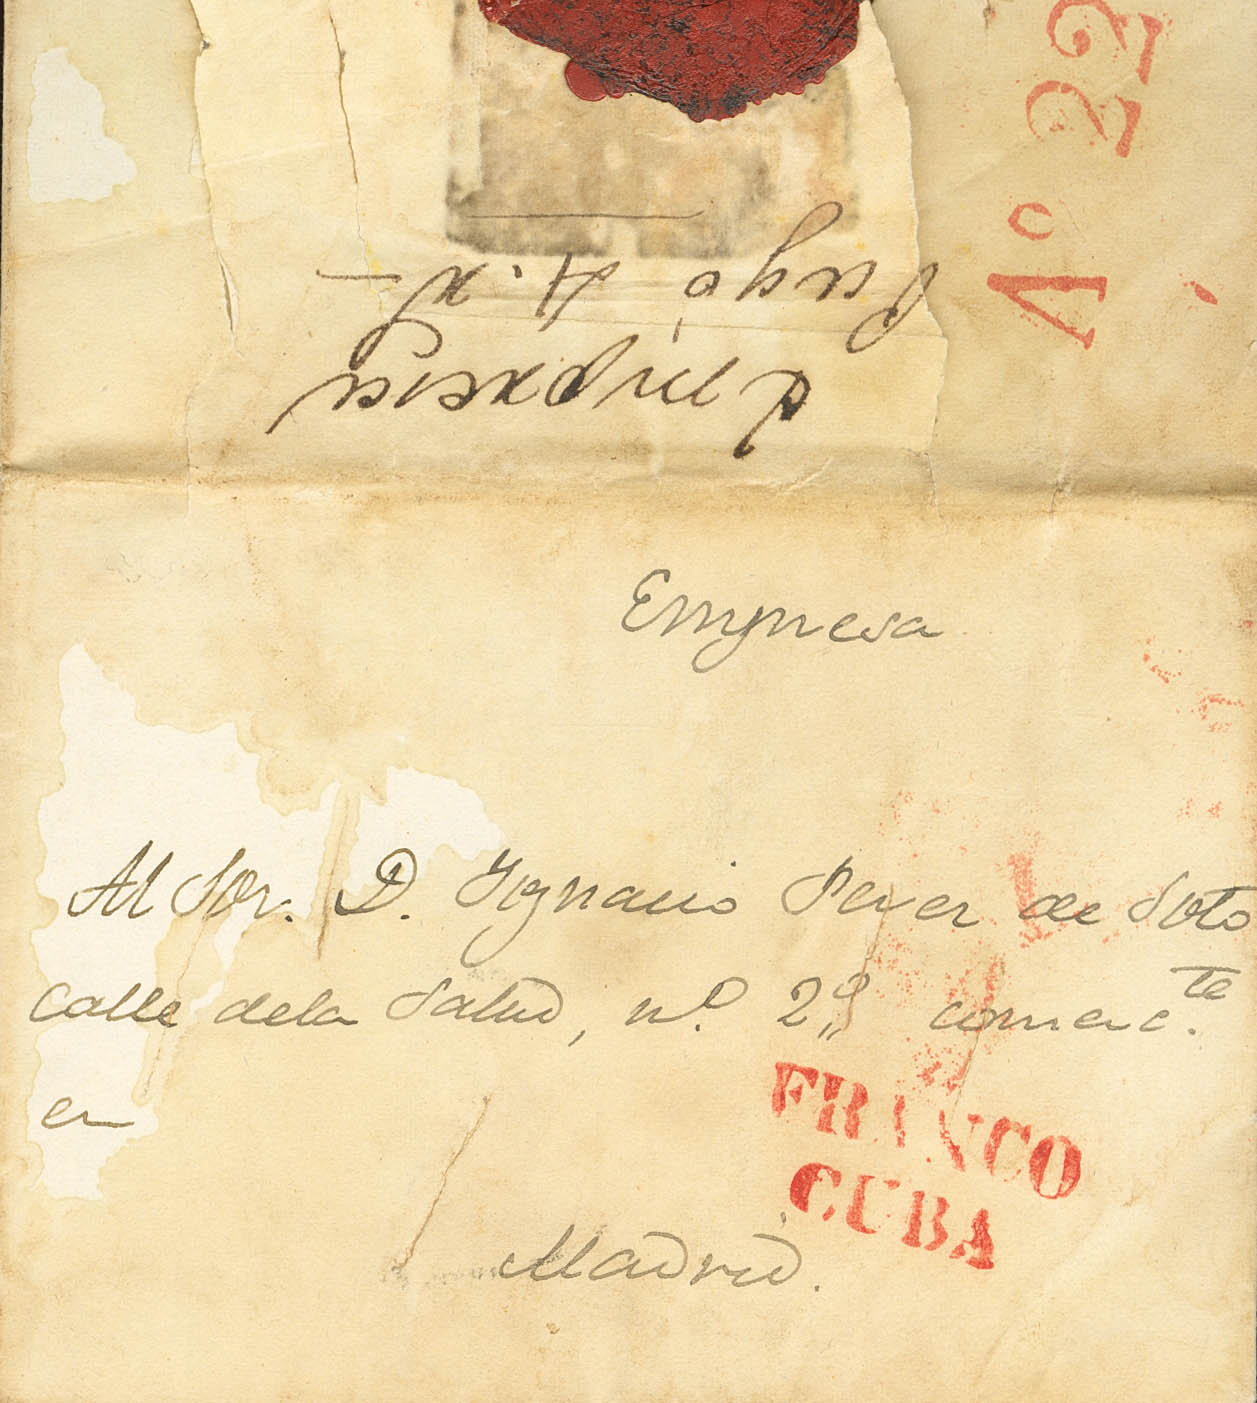 Aº 22
Pagó 4. r
Empresa
Empresa
Al Sor. D. Ygnacio Perez de Soto
calle dela Salud, nº 2º,, comerc.te
en
FRANCO
CUBA
Madrid.